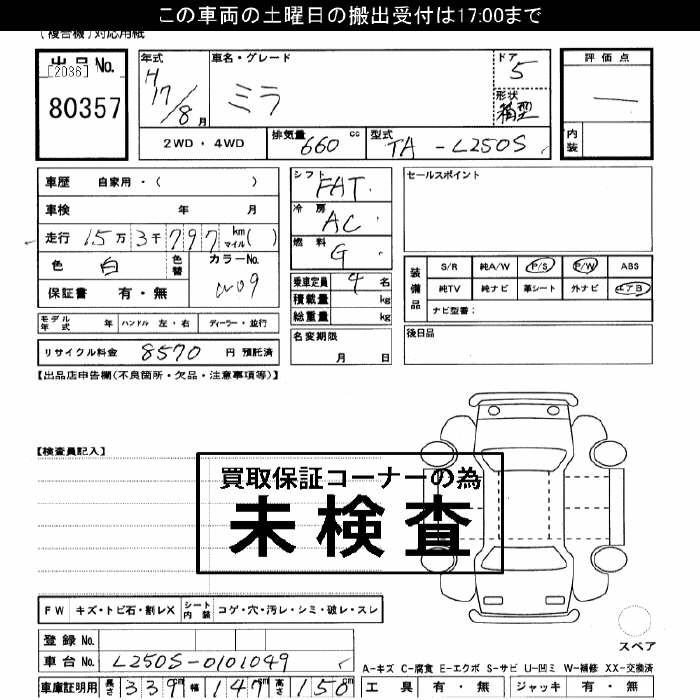 この車両の土曜日の搬出受付は17:00まで
(複合機)対応用紙
出品No. [2036]
80357
年式 H17/8月
車名・グレード ミラ
ドア 5
形状 箱型
評価点 ―
内装
2WD・4WD 排気量 660 cc 型式 TA-L250S
車歴 自家用・( )
車検 年 月
走行 15万3千797 km マイル( )
色 白 色替 カラーNo. W09
保証書 有・無
シフト FAT
冷房 AC
燃料 G
乗車定員 4名
積載量 kg
総重量 kg
セールスポイント
装備品
S/R 純A/W P/S P/W ABS
純TV 純ナビ 革シート 外ナビ エアB
ナビ型番:
モデル年式 年 ハンドル 左・右 ディーラー・並行
リサイクル料金 8570 円 預託済
名変期限 月 日
後日品
【出品店申告欄(不良箇所・欠品・注意事項等)】
【検査員記入】
買取保証コーナーの為
未検査
FW キズ・トビ石・割レX シート内装 コゲ・穴・汚レ・シミ・破レ・スレ
スペア
登録No.
車台No. L250S-0101049
A-キズ C-腐食 E-エクボ S-サビ U-凹ミ W-補修 XX-交換済
車庫証明用 長さ 339cm 幅 147cm 高さ 150cm
工具 有・無 ジャッキ 有・無